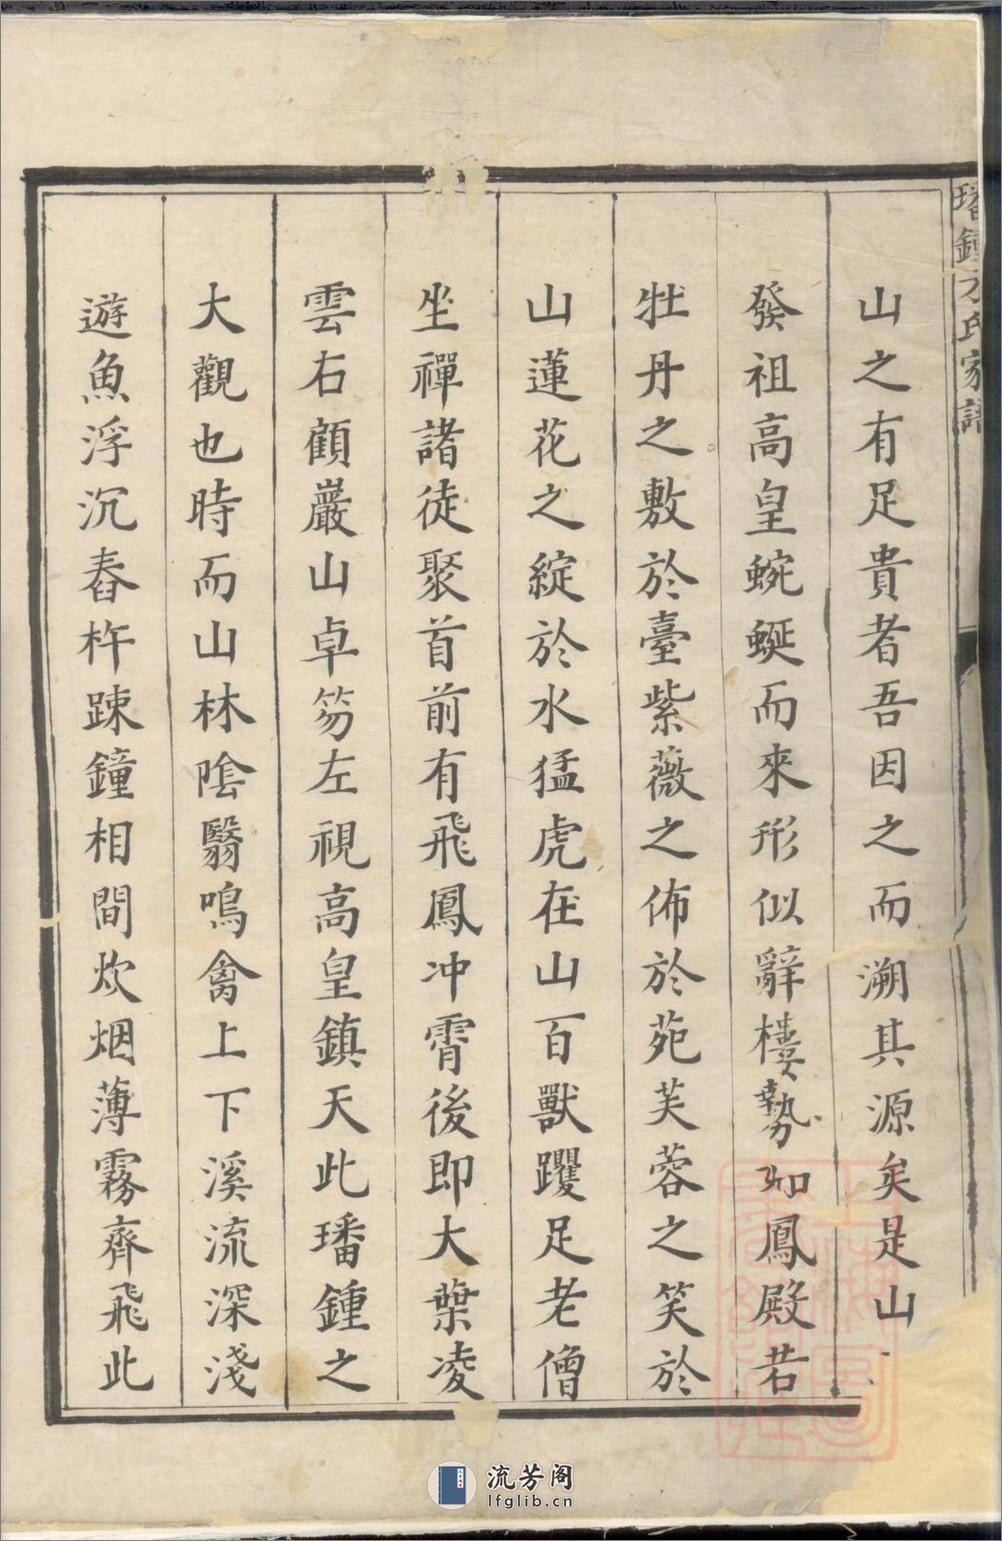 璠鍾方氏家譜
山之有足貴者吾因之而溯其源矣是山
發祖高皇蜿蜒而來形似辭樓勢如鳳殿若
牡丹之敷於臺紫薇之佈於苑芙蓉之笑於
山蓮花之綻於水猛虎在山百獸躩足老僧
坐禪諸徒聚首前有飛鳳冲霄後即大葉凌
雲右顧巖山卓笏左視高皇鎮天此璠鍾之
大觀也時而山林陰翳鳴禽上下溪流深淺
遊魚浮沉舂杵踈鐘相間炊烟薄霧齊飛此
流芳阁
lfglib.cn